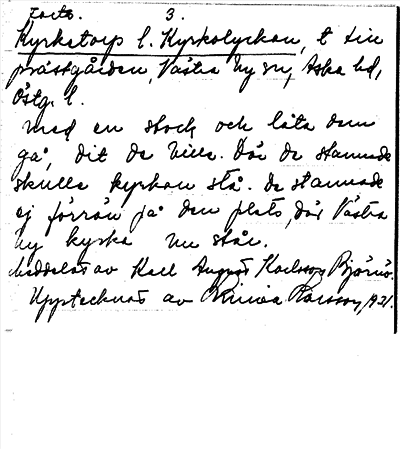 Forts. 3.
Kyrketorp l. Kyrkolyckan, t till
prästgården, Västra Ny sn, Aska hd,
Östg. l.
med en stock och låta dem
gå, dit de ville. Där de stannade
skulle kyrkan stå. De stannade
ej förrän på den plats, där Västra
Ny kyrka nu står.
Meddelat av Karl August Karlsson, Björnö.
Upptecknat av Linnea Larsson, 1921.